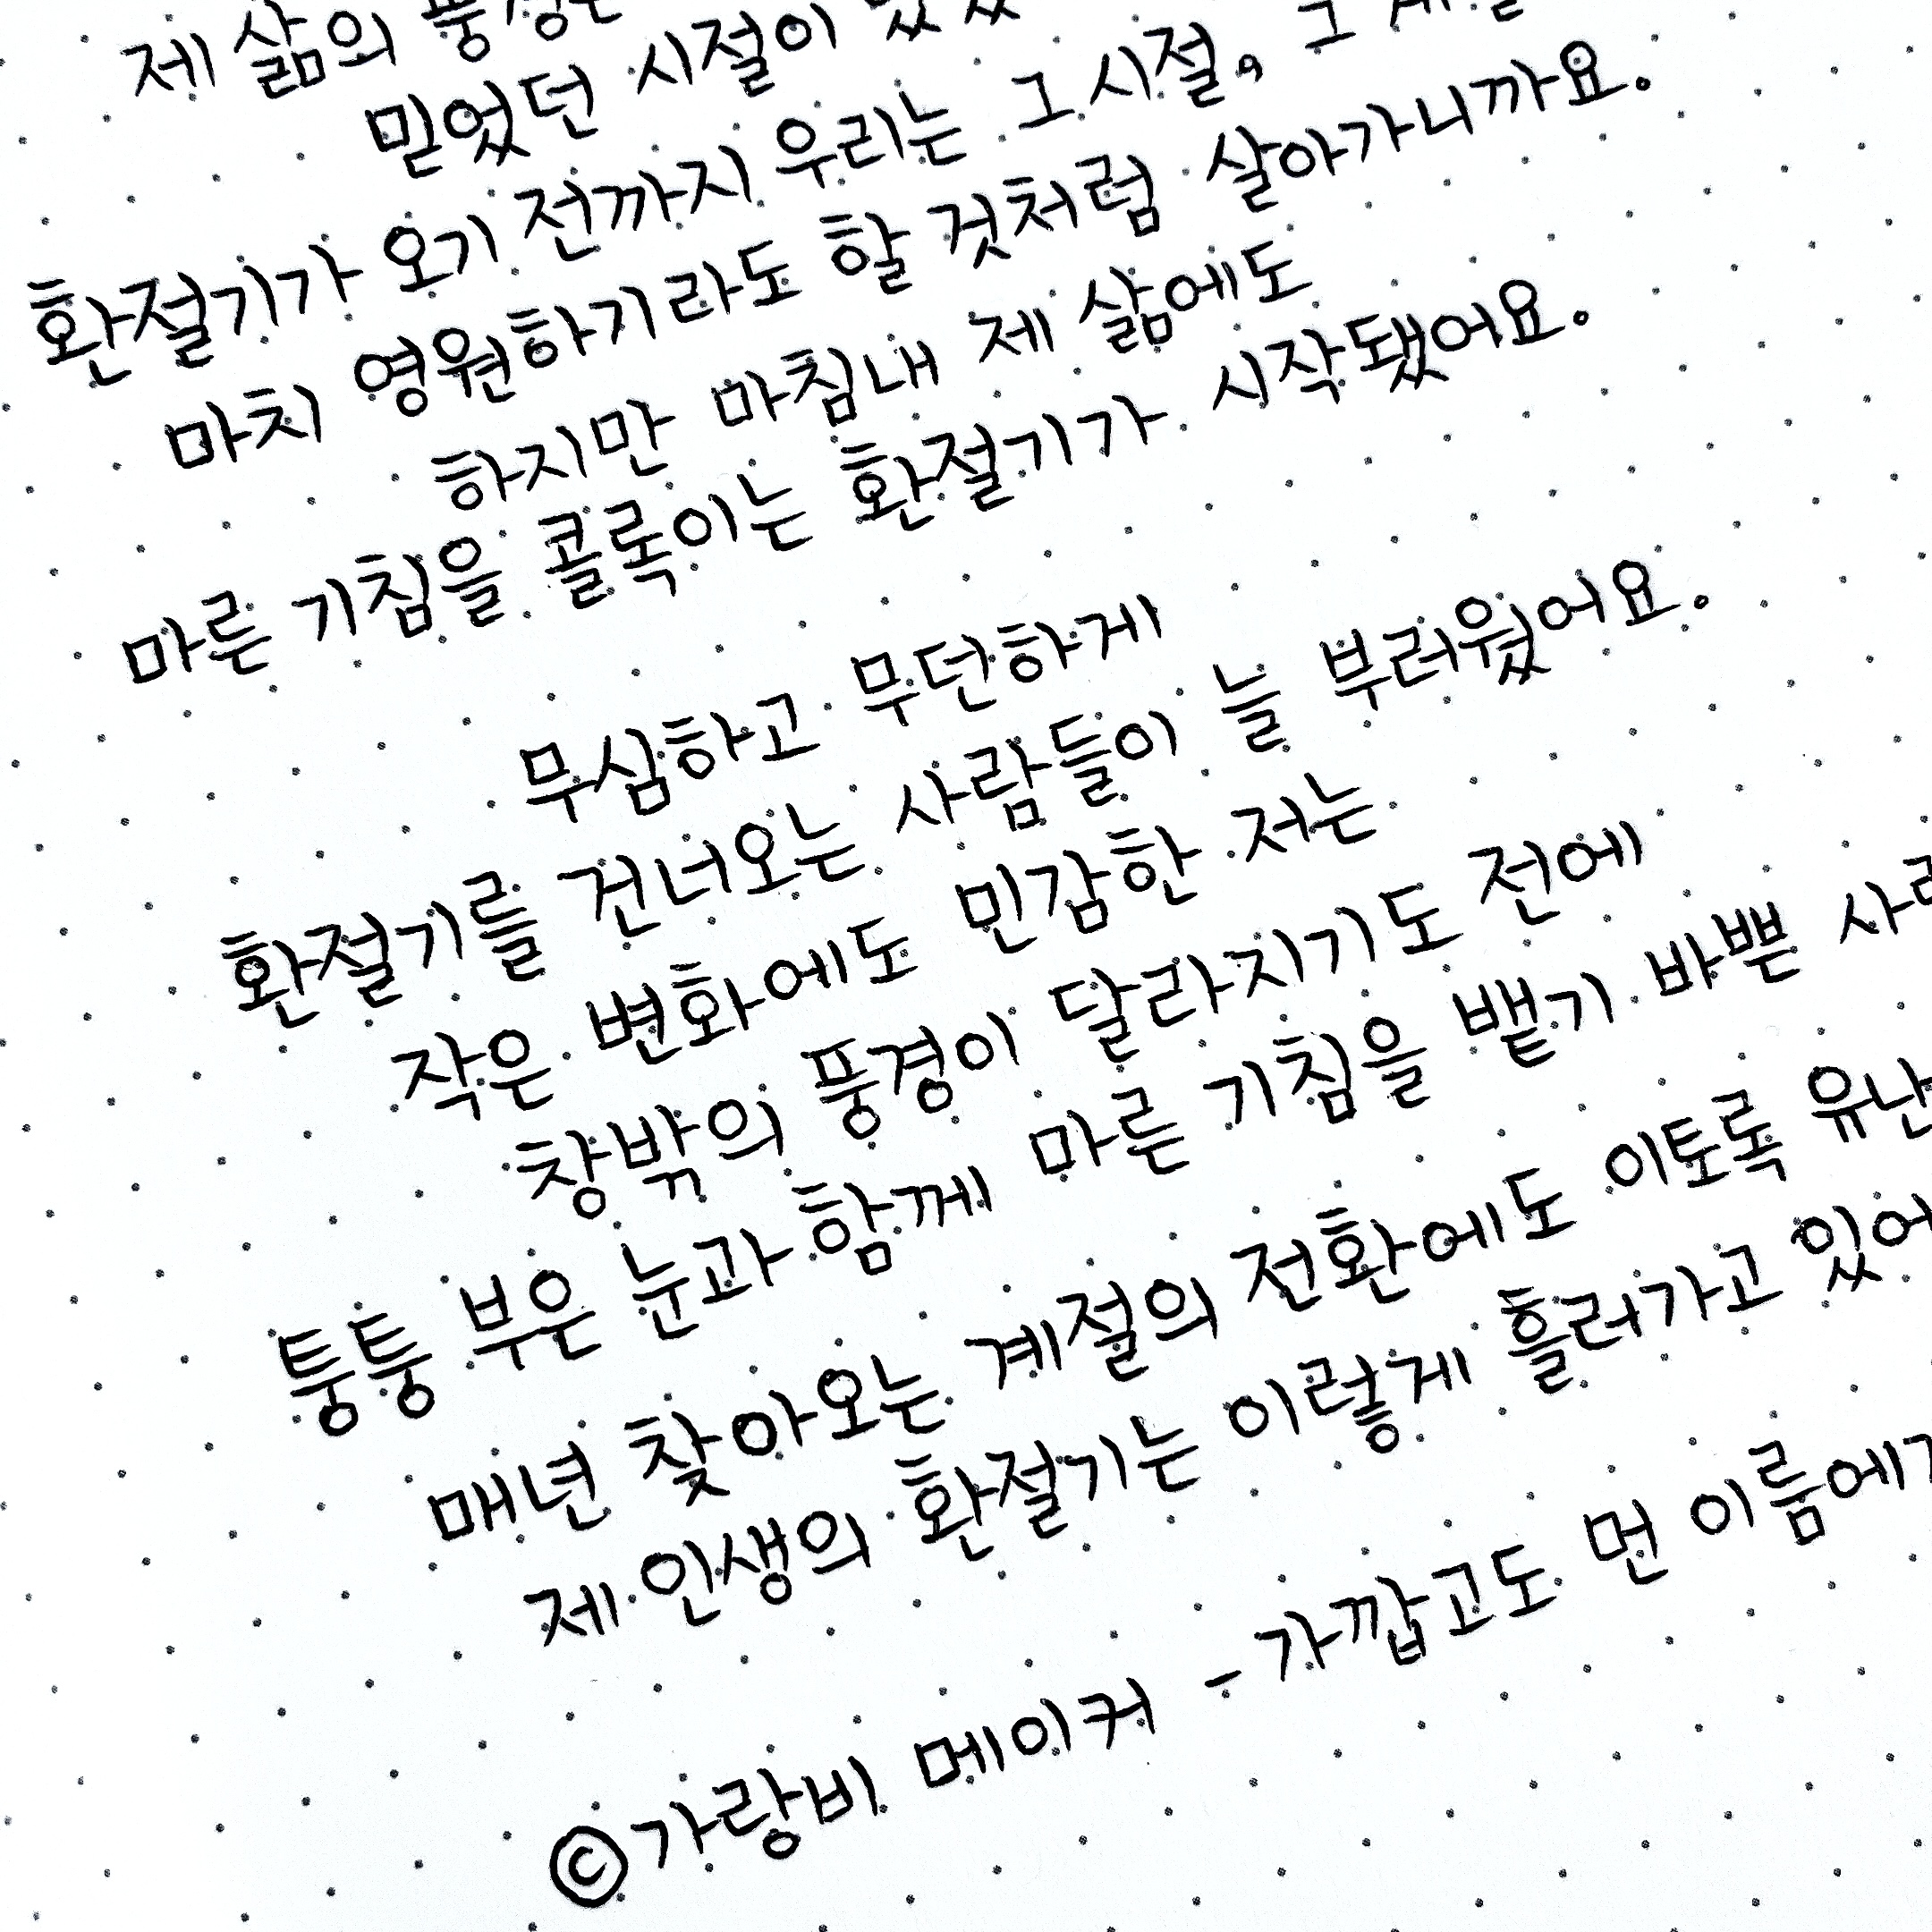 제 삶의
믿었던 시절이
환절기가 오기 전까지 우리는 그 시절, 그
마치 영원하기라도 할 것처럼 살아가니까요.
하지만 마침내 제 삶에도
마른 기침을 콜록이는 환절기가 시작됐어요.
무심하고 무던하게
환절기를 건너오는 사람들이 늘 부러웠어요.
작은 변화에도 민감한 저는
창밖의 풍경이 달라지기도 전에
퉁퉁 부은 눈과 함께 마른 기침을 뱉기 바쁜
매년 찾아오는 계절의 전환에도 이토록 유난
제 인생의 환절기는 이렇게 흘러가고 있어
©가랑비 메이커 - 가깝고도 먼 이름에